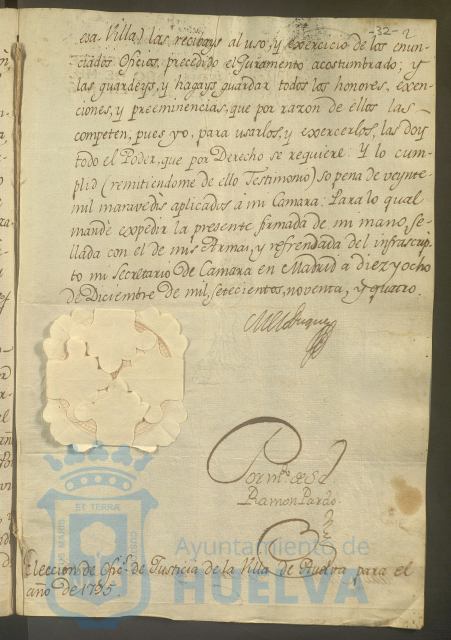 -32- 2
esa Villa) las recibays al uso, y exercicio de los enun-
ciados Oficios, precedido el Juramento acostumbrado; y
las guardeys, y hagays guardar todos los honores, exen-
ciones, y preeminencias, que por razon de ellos las
competen, pues yo, para usarlos, y exercerlos, las doy
todo el Poder, que por Derecho se requiere: Y lo cum-
plid (remitiendome de ello Testimonio) so pena de veynte
mil maravedis aplicados a mi Camara: Para lo qual
mandè expedir la presente firmada de mi mano, se-
llada con el de mis Armas, y refrendada del infrascrip-
to mi Secretario de Camara en Madrid a diez y ocho
de Diciembre de mil, setecientos, noventa, y quatro.
Por mdo. de S.E.
Ramon Pardo.
ET TERRA
Ayuntamiento de
HUELVA
Eleccion de Ofics. de Justicia de la Villa de Huelva para el
año de 1795.